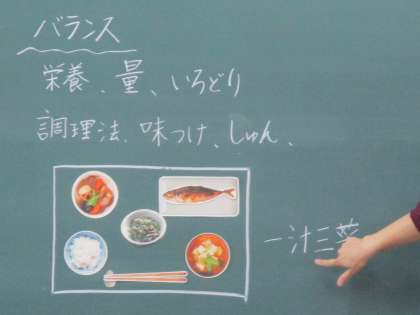 バランス
栄養、量、いろどり
調理法、味つけ、しゅん、
一汁三菜